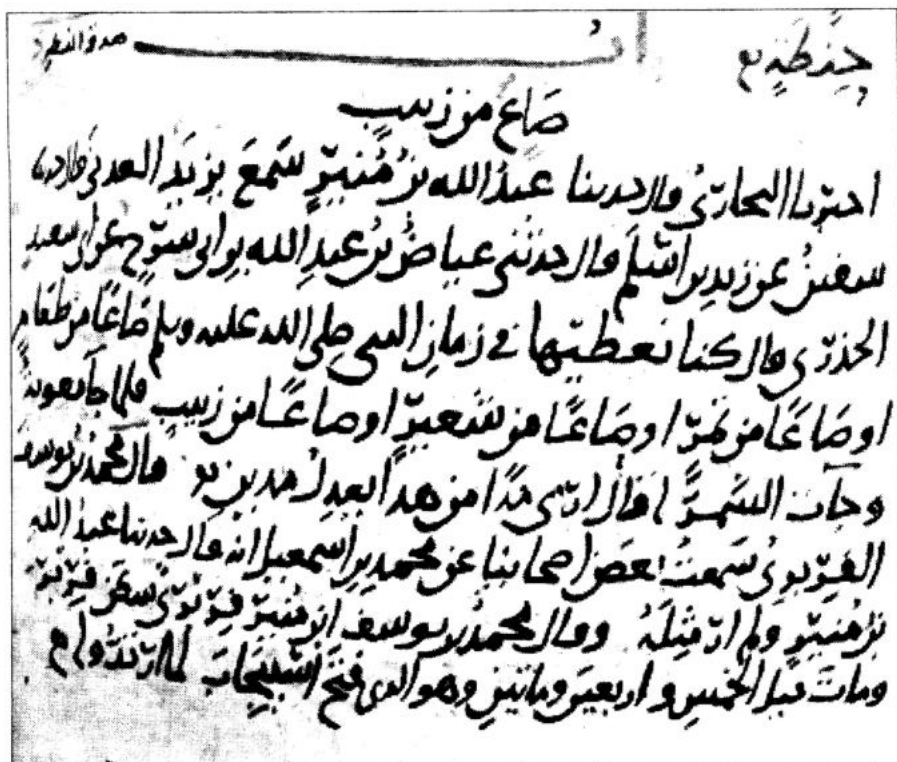 حنطة
صدقة الفطر
صَاع من زبيب
اخبرنا البخاريُ قال حدثنا عبدُ الله بنُ مُنيرٍ سَمعَ يزيدَ العدني قال حدثنا
سفينُ عن زيدِ بن اسلم قال حدثنى عياضُ بنُ عبدِ الله بن ابى سرحٍ عن ابى سعيد
الخدرى قال كنا نعطيها في زمانِ النبي صلى الله عليه وسلم صَاعًا من طعَامٍ
او صَاعًا من تمر او صَاعًا من شعير او صاعًا من زبيبٍ فلما جآ معوية
وجآت السَمرآ قال ارى مدًا من هذا يعدلُ مدين قال محمد بن يوسف
الفربرى سَمعتُ بعضَ اصحابنا عن محمدِ بن اسمعيل انه قال حدثنا عبدُ الله
بنُ منيرٍ ولم ار مثلَهُ وقال محمدُ بن يوسف ابنُ منير فربرى سكن فربر
ومات قبل الخمسِ واربعينَ ومايتين وهو الذى فتحَ اسبيجابَ لما ارتدوا